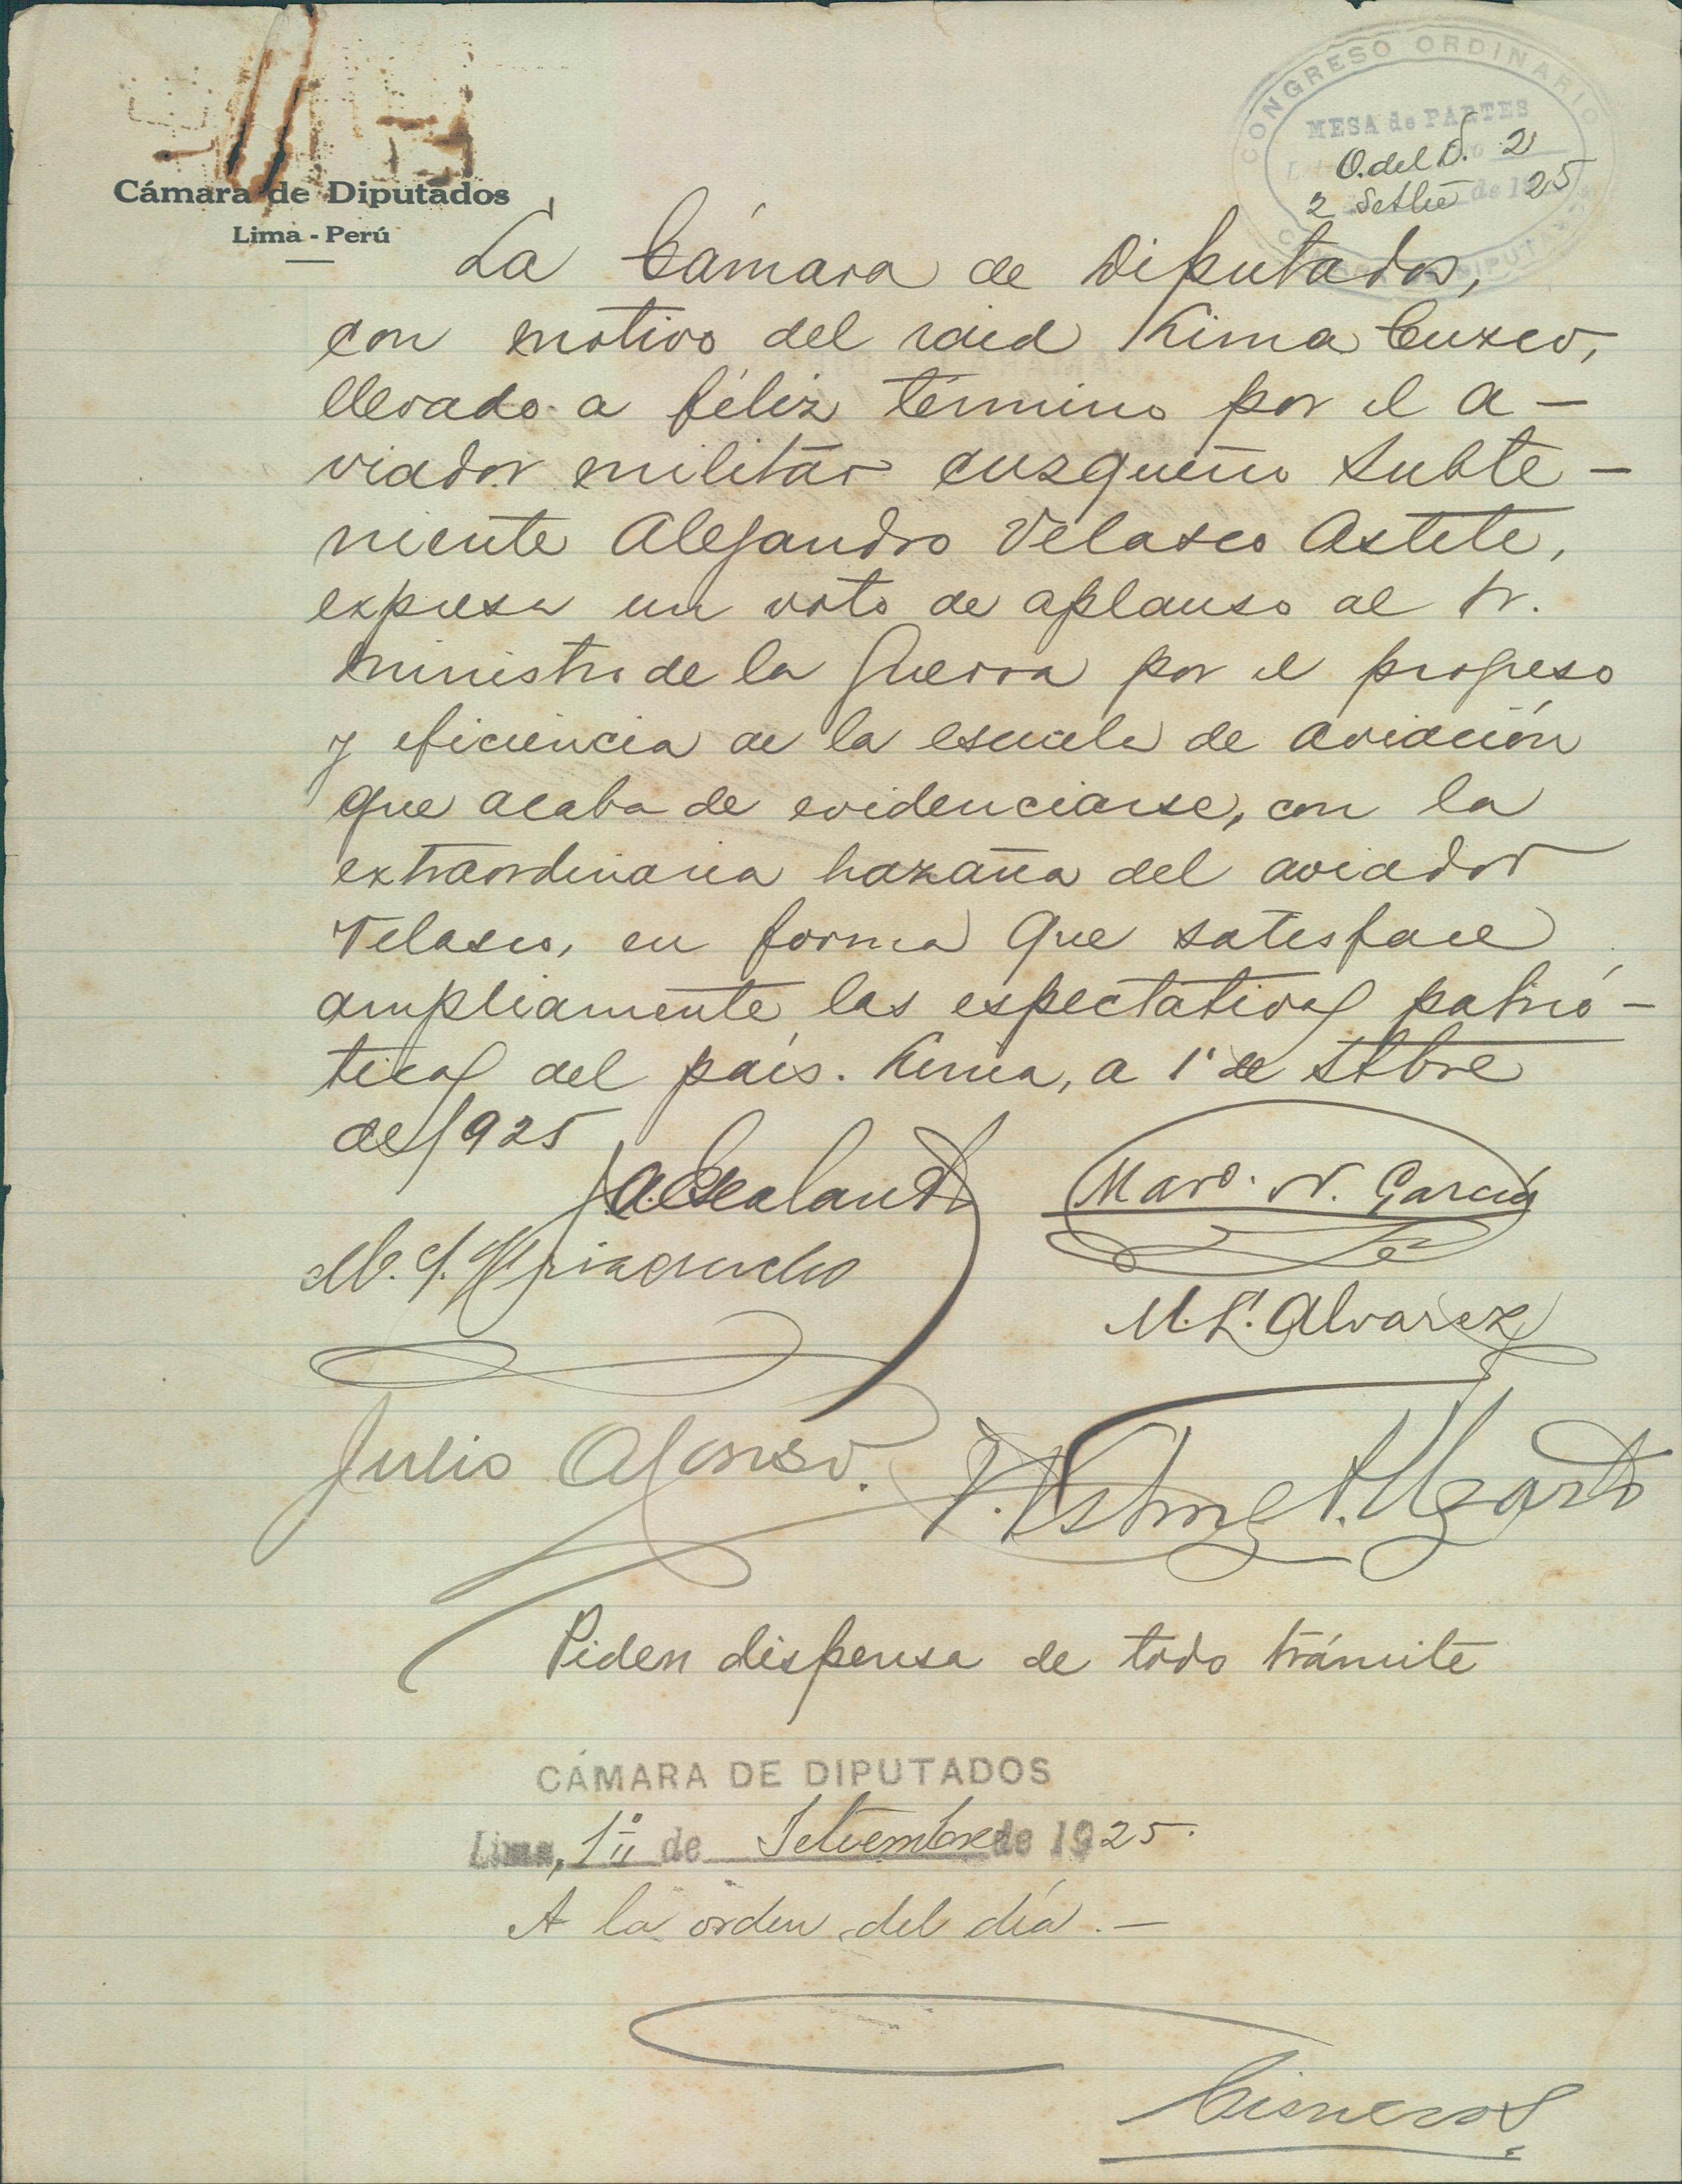 Cámara de Diputados
Lima - Perú
CONGRESO ORDINARIO
MESA de PARTES
O. del D. 2
2 Setbre de 1925
DIPUTADOS
La Cámara de Diputados,
con motivo del raid Lima Cuzco,
llevado a féliz término por el a-
viador militar cuzqueño Subte-
niente Alejandro Velasco Astete,
expresa un voto de aplauso al Sr.
Ministro de la Guerra por el progreso
y eficiencia de la escuela de aviación
que acaba de evidenciarse, con la
extraordinaria hazaña del aviador
Velasco, en forma que satisface
ampliamente las espectativas patrió-
ticas del país. Lima, a 1º de Stbre
de 1925
J. A. Escalante
Mard. N. García
M. S.
M. L. Alvarez
Julio Alfonso.
Ugarte
Piden dispensa de todo trámite
CÁMARA DE DIPUTADOS
Lima, 1º de Setiembre de 1925.
A la orden del día. —
Cisneros